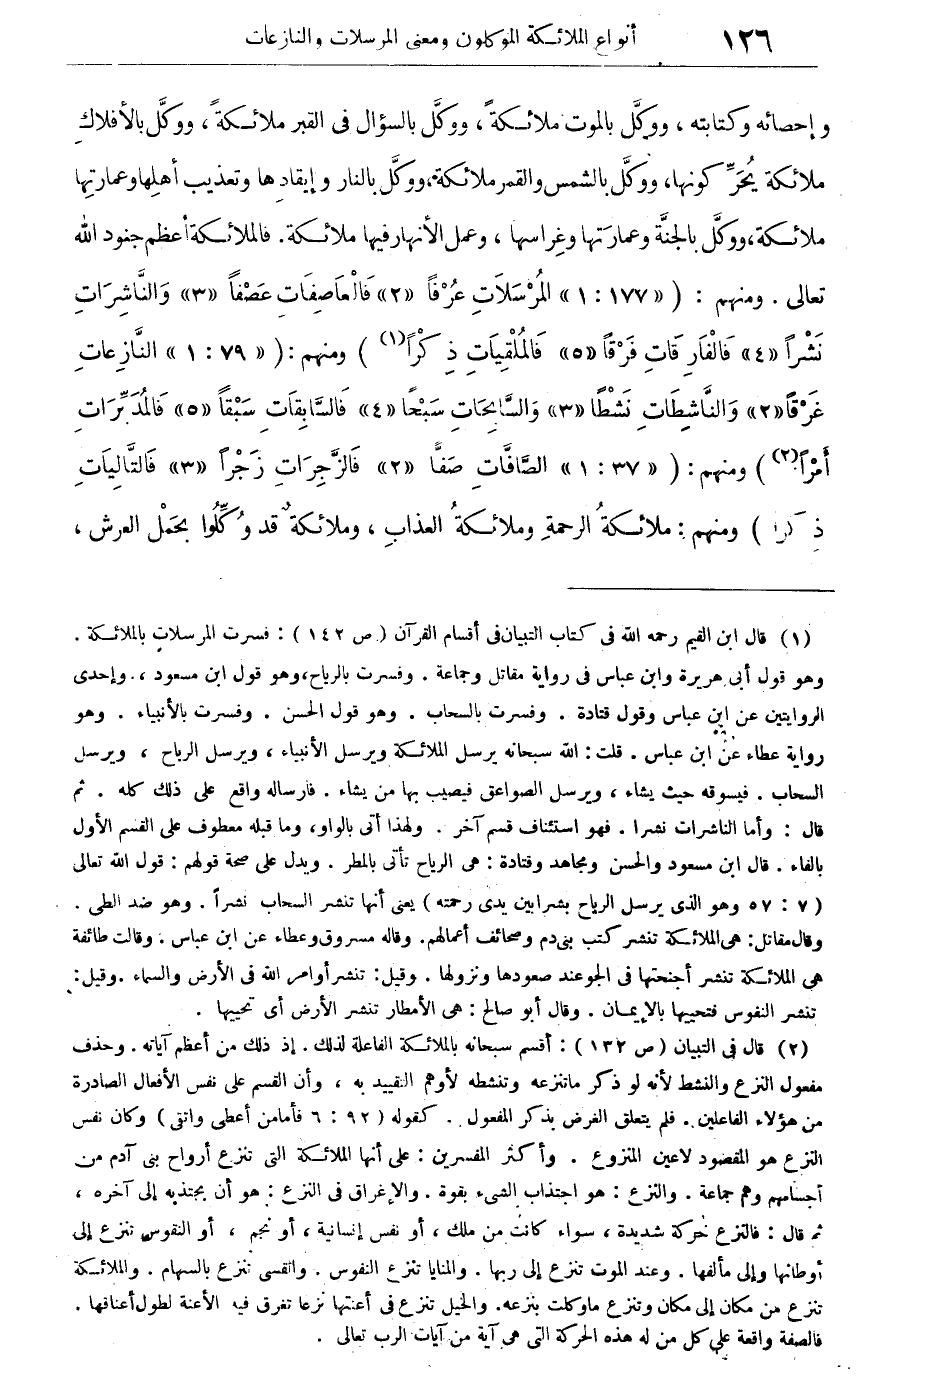 ١٢٦ أنواع الملائكة الموكلون ومعنى المرسلات والنازعات
وإحصائه وكتابته ، ووكَّل بالموت ملائكةً ، ووكَّل بالسؤال فى القبر ملائكةً ، ووكَّل بالأفلاكِ
ملائكة يُحَرِّكونها، ووكَّل بالشمس والقمر ملائكة، ووكَّل بالنار وإيقادِها وتعذيب أهلِها وعمارتِها
ملائكة، ووكَّل بالجنَّة وعمارَتِها وغِراسِها ، وعمل الأنهار فيها ملائكة. فالملائكة أعظم جنود الله
تعالى . ومنهم : ( « ١٧٧ : ١ » المُرْسَلاَتِ عُرْفاً «٢» فَالْعاَصِفَاتِ عَصْفاً «٣» وَالنَّاشِرَاتِ
نَشْراً «٤» فَالْفَارِقَاتِ فَرْقًا «٥» فَالمُلْقِيَاتِ ذِكْراً(١) ) ومنهم : ( « ٧٩ : ١ » النَّازِعاتِ
غَرْقًا «٢» وَالنَّاشِطَاتِ نَشْطًا «٣» وَالسَّابِحَاتِ سَبْحًا «٤» فَالسَّابِقَاتِ سَبْقًا «٥» فَالمُدَبِّرَاتِ
أَمْرًا(٢) ) ومنهم : ( « ٣٧ : ١ » الصَّافَّاتِ صَفًّا «٢» فَالزَّجِرَاتِ زَجْراً «٣» فَالتَّالِيَاتِ
ذِكْرًا ) ومنهم : ملائكةُ الرحمةِ وملائكةُ العذابِ ، وملائكةٌ قد وُكِّلُوا بحَمْل العرش ،
(١) قال ابن القيم رحمه الله فى كتاب التبيان فى أقسام القرآن ( ص ١٤٢ ) : فسرت المرسلات بالملائكة .
وهو قول أبى هريرة وابن عباس فى رواية مقاتل وجماعة . وفسرت بالرياح، وهو قول ابن مسعود ، وإحدى
الروايتين عن ابن عباس وقول قتادة . وفسرت بالسحاب . وهو قول الحسن . وفسرت بالأنبياء . وهو
رواية عطاء عن ابن عباس . قلت : الله سبحانه يرسل الملائكة ويرسل الأنبياء ، ويرسل الرياح ، ويرسل
السحاب . فيسوقه حيث يشاء ، ويرسل الصواعق فيصيب بها من يشاء . فارساله واقع على ذلك كله . ثم
قال : وأما الناشرات نشرا . فهو استئناف قسم آخر . ولهذا أتى بالواو، وما قبله معطوف على القسم الأول
بالفاء . قال ابن مسعود والحسن ومجاهد وقتادة : هى الرياح تأتى بالمطر . ويدل على صحة قولهم : قول الله تعالى
( ٧ : ٥٧ وهو الذى يرسل الرياح بشرا بين يدى رحمته ) يعنى أنها تنشر السحاب نشراً . وهو ضد الطى .
وقال مقاتل: هى الملائكة تنشر كتب بنى دم وصحائف أعمالهم. وقاله مسروق وعطاء عن ابن عباس . وقالت طائفة
هى الملائكة تنشر أجنحتها فى الجو عند صعودها ونزولها . وقيل: تنشر أوامر الله فى الأرض والسماء . وقيل:
تنشر النفوس فتحييها بالإيمان . وقال أبو صالح : هى الأمطار تنشر الأرض أى تحييها .
(٢) قال فى التبيان ( ص ١٣٢ ) : أقسم سبحانه بالملائكة الفاعلة لذلك . إذ ذلك من أعظم آياته . وحذف
مفعول النزع والنشط لأنه لو ذكر ماتنزعه وتنشطه لأوهم التقييد به ، وأن القسم على نفس الأفعال الصادرة
من هؤلاء الفاعلين . فلم يتعلق الغرض بذكر المفعول . كقوله ( ٩٢ : ٦ فأما من أعطى واتقى ) وكان نفس
النزع هو المقصود لاعين المنزوع . وأكثر المفسرين : على أنها الملائكة التى تنزع أرواح بنى آدم من
أجسامهم وهم جماعة . والنزع : هو اجتذاب الشىء بقوة . والإغراق فى النزع : هو أن يجتذبه إلى آخره ،
ثم قال : فالنزع حركة شديدة ، سواء كانت من ملك ، أو نفس إنسانية ، أو نجم ، أو النفوس تنزع إلى
أوطانها وإلى مألفها . وعند الموت تنزع إلى ربها . والمنايا تنزع النفوس . والقسى تنزع بالسهام . والملائكة
تنزع من مكان إلى مكان وتنزع ماوكلت بنزعه. والخيل تنزع فى أعنتها نزعا تغرق فيه الأعنة لطول أعناقها .
فالصفة واقعة على كل من له هذه الحركة التى هى آية من آيات الرب تعالى .